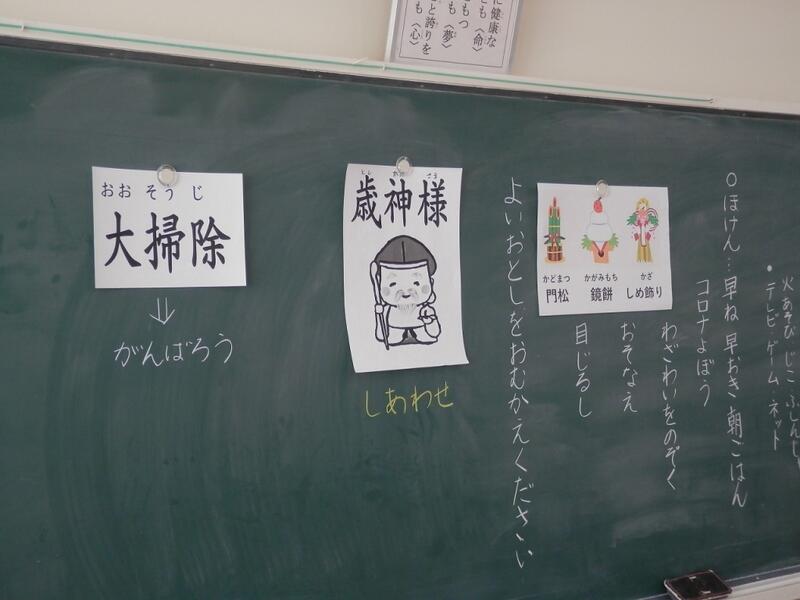 に健康な
とも〈命〉
もつ
も〈夢〉
と誇りを
も〈心〉
火あそび じこ ふしんしゃ
・テレビ・ゲーム・ネット
○ほけん…早ね 早おき 朝ごはん
コロナよぼう
かどまつ
門松
かがみもち
鏡餅
かざ
しめ飾り
わざわいをのぞく
おそなえ
目じるし
よいおとしをおむかえください
とし がみ さま
歳神様
しあわせ
おお そう じ
大掃除
⇓
がんばろう